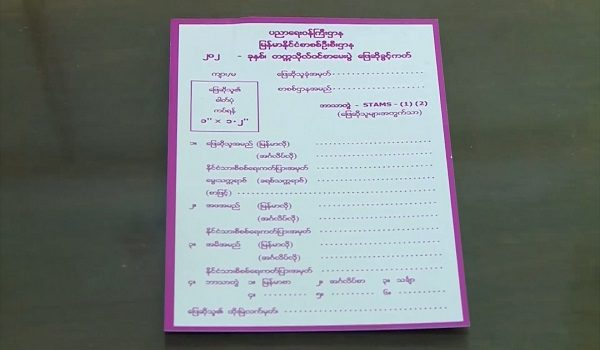 ပညာရေးဝန်ကြီးဌာန
မြန်မာနိုင်ငံစာစစ်ဦးစီးဌာန
၂၀၂ - ခုနှစ်၊ တက္ကသိုလ်ဝင်စာမေးပွဲ ဖြေဆိုခွင့်ကတ်
ကျား/မ
ဖြေဆိုသူခုံအမှတ်
စာစစ်ဌာနအမည်
ဖြေဆိုသူ၏
ဓါတ်ပုံ
ကပ်ရန်
၁" × ၁.၂"
ဘာသာတွဲ - STAMS - (1) (2)
(ဖြေဆိုသူများအတွက်သာ)
၁။ ဖြေဆိုသူအမည် (မြန်မာလို)
(အင်္ဂလိပ်လို)
နိုင်ငံသားစိစစ်ရေးကတ်ပြားအမှတ်
မွေးသက္ကရာဇ် (ခရစ်သက္ကရာဇ်)
(စာဖြင့်)
၂။ အဖအမည် (မြန်မာလို)
(အင်္ဂလိပ်လို)
နိုင်ငံသားစိစစ်ရေးကတ်ပြားအမှတ်
၃။ အမိအမည် (မြန်မာလို)
(အင်္ဂလိပ်လို)
နိုင်ငံသားစိစစ်ရေးကတ်ပြားအမှတ်
၄။ ဘာသာတွဲ ၁။ မြန်မာစာ ၂။ အင်္ဂလိပ်စာ ၃။ သင်္ချာ
၄။ ၅။ ၆။
ဖြေဆိုသူ၏ ထိုးမြဲလက်မှတ်